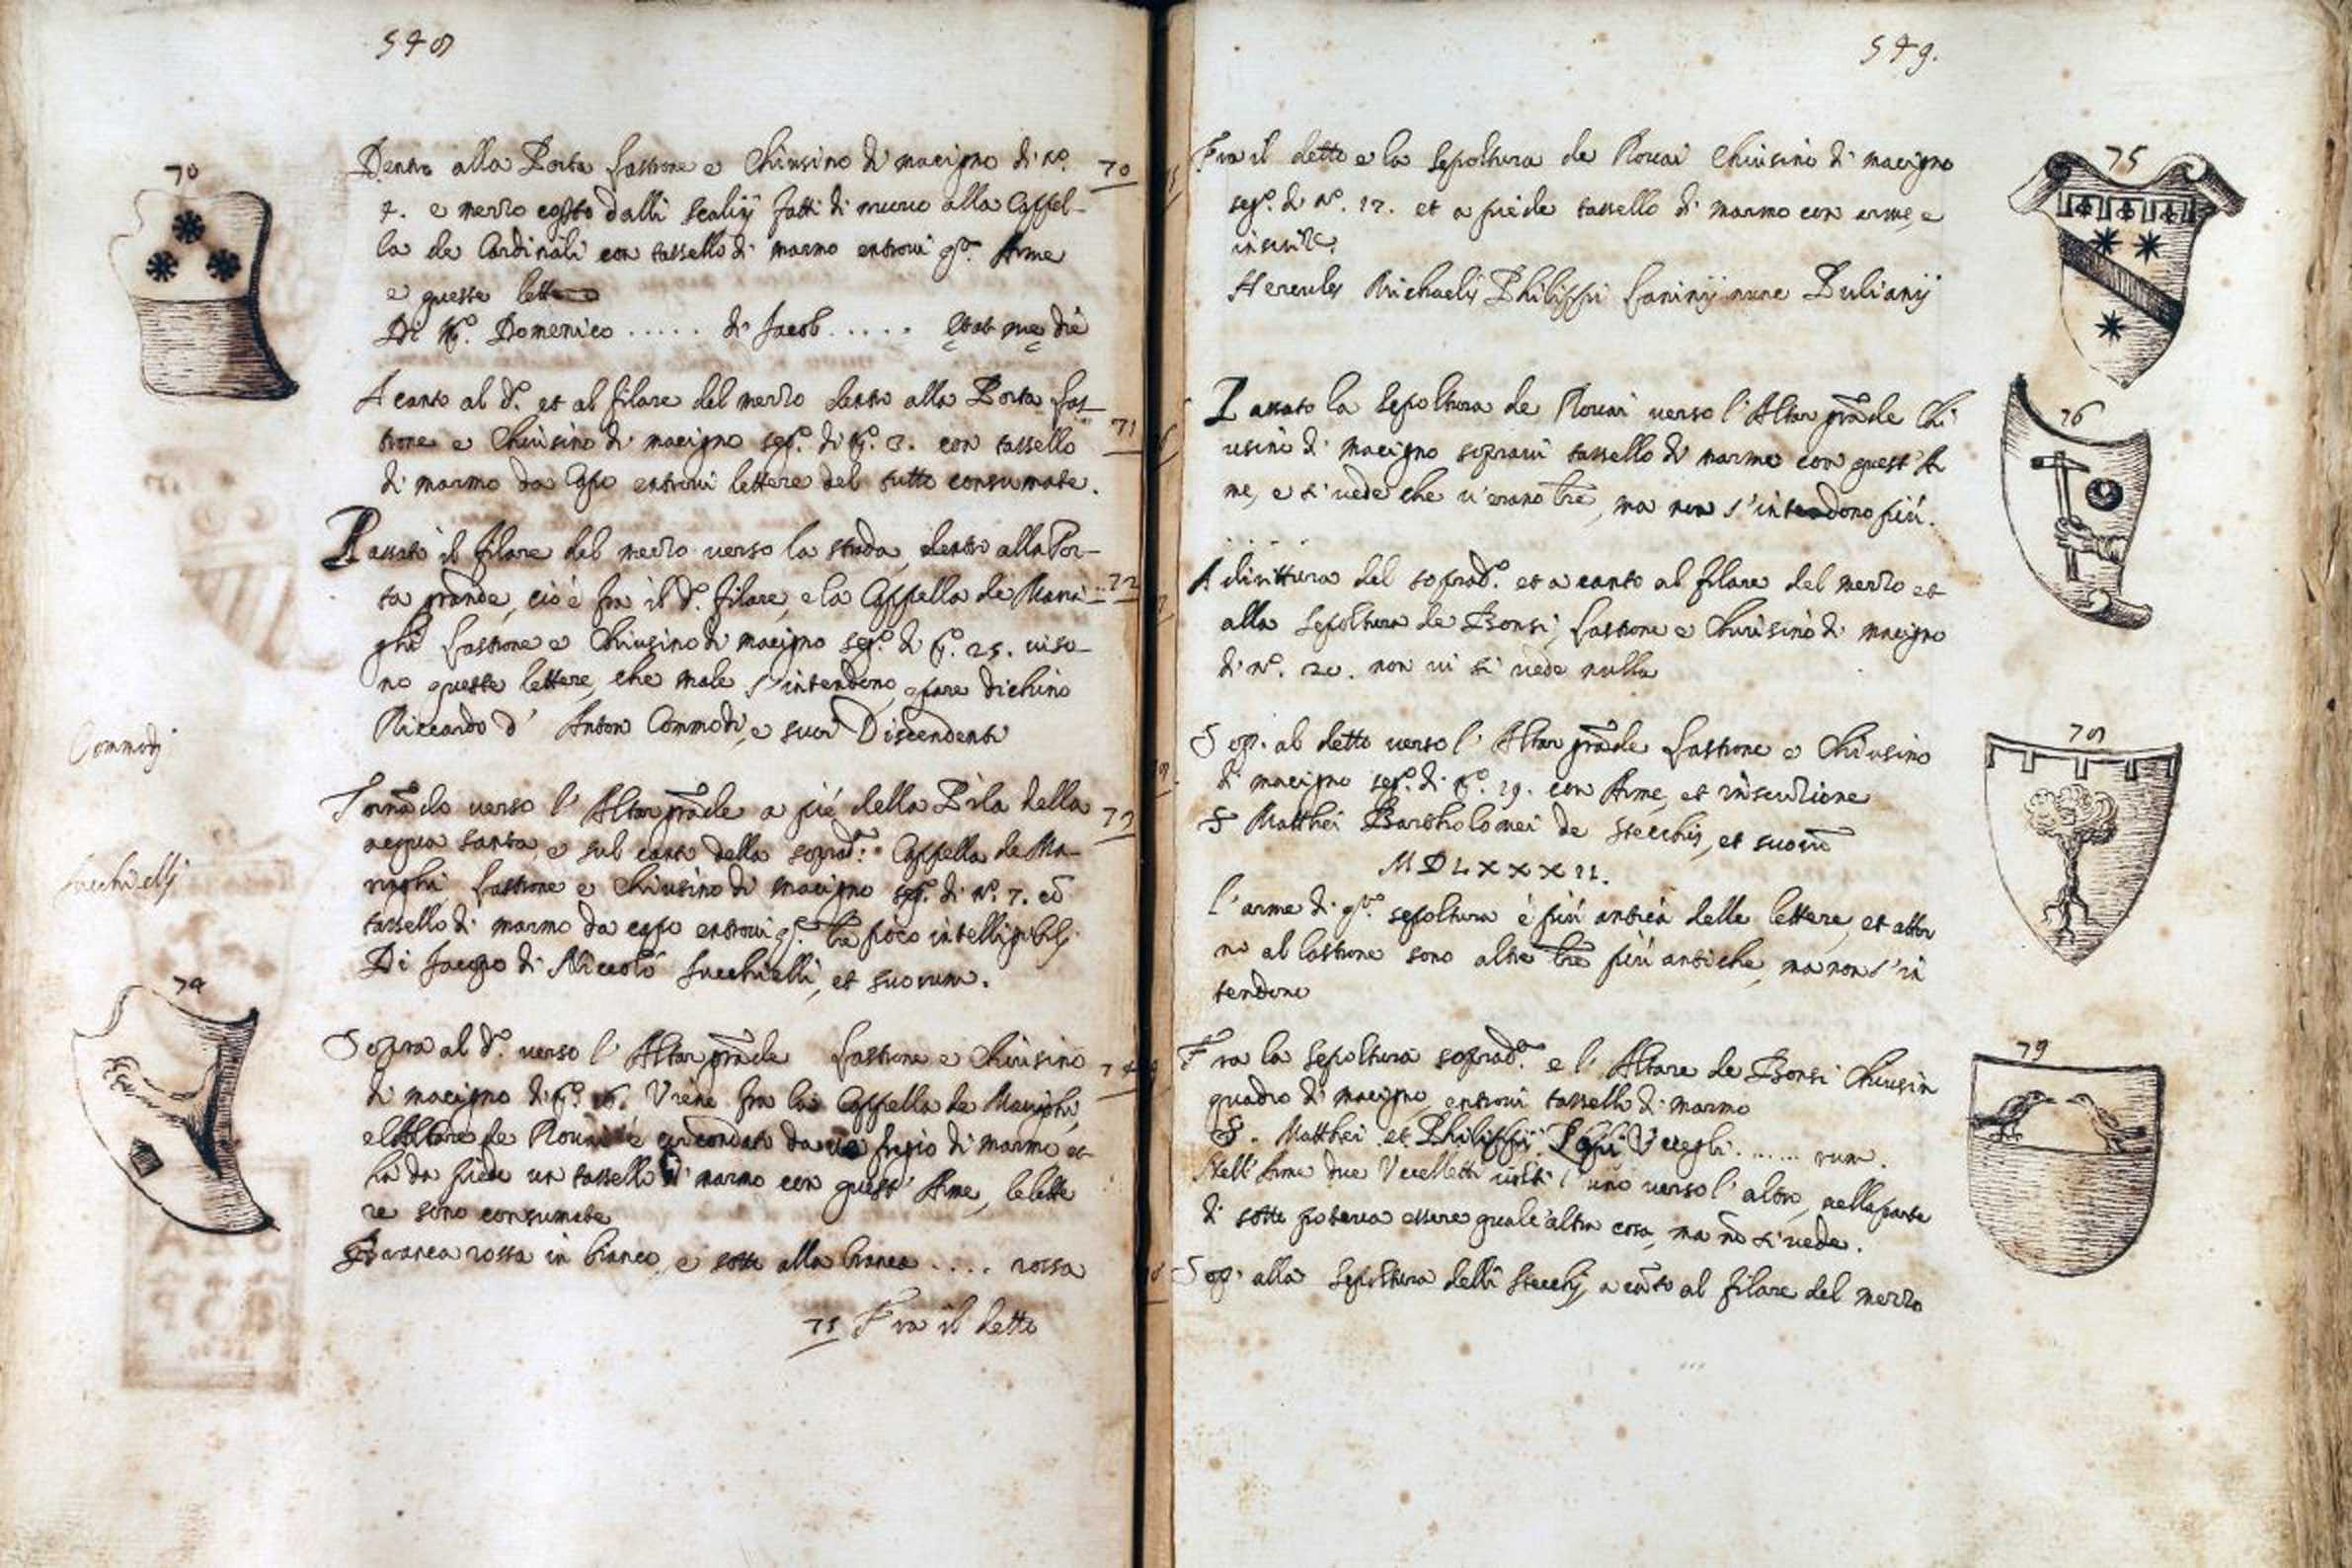 548
70
Dentro alla Porta lastrone e Chiusino di macigno di nº.
70
7. e mezzo dalli scalini fatti di nuovo alla Cappel-
la de Cardinali con tassello di marmo entrovi qta. Arme
e queste lettere
Di Domenico ..... di Jacob .....
A canto al dº. et al filare del mezzo dentro alla Porta las-
71
trone e Chiusino di macigno segº. di nº. 3. con tassello
di marmo da capo entrovi lettere del tutto consumate.
Passato il filare del mezzo verso la strada, dentro alla Por-
72
ta grande, cioè fra il dº. filare, e la Cappella de Mani-
ghi lastrone e Chiusino di macigno segº. di nº. 25. viso-
no queste lettere, che male s'intendono, pare dichino
Riccardo d' Anton Commodi, e suoi Discendenti
Commodi
Tornãdo verso l' Altar grãde a piè della Pila della
73
acqua santa, e sul canto della soprad.ª Cappella de Ma-
righi lastrone e Chiusino di macigno segº. di nº. 7. cõ
tassello di marmo da capo entrovi poco intelligibili
Di Jacopo di Niccolò Succhielli, et suorum.
Succhielli
74
Sopra al dº. verso l' Altar grãde lastrone e Chiusino
74
di macigno di nº. 16. Viene fra la Cappella de Marighi,
e l'Altare de Rovai è circondato da un fregio di marmo et
hà da piede un tassello di marmo con quest' Arme, le lette
re sono consumate
Branca rossa in bianco, e sotto alla branca .... rossa
75 Fra il detto
549.
75
Fra il detto e la sepoltura de Rovai Chiusino di macigno
segº. di nº. 17. et a piede tassello di marmo con arme, e
inscriz.
Hercules Michaelis Philippi Puliany
76
Passato la sepoltura de Rovai verso l' Altar grãde Chi
usino di macigno sopravi tassello di marmo con quest' Ar
me, e si vede che v'erano lre, ma non s'intendono più.
A dirittura del soprad.º et a canto al filare del mezzo et
alla sepoltura de Bonsi, lastrone e Chiusino di macigno
di nº. 20. non vi si vede nulla
78
Sop. al detto verso l' Altar grãde lastrone e Chiusino
di macigno segº. di nº. 19. con Arme, et inscrizione
S Matthei Bartholomei de Stecchis, et suorũ
MDLXXXII.
l'arme di qta. sepoltura è più antica delle lettere, et attor
no al lastrone sono altre lre più antiche, ma non s'in
tendono
79
Fra la sepoltura soprad.ª e l' Altare de Bonsi Chiusin
quadro di macigno entrovi tassello di marmo
S. Matthei et Philippi ...... rum.
Nell' Arme due Uccelletti volti l'uno verso l'altro, nella parte
di sotto poteva essere qualc'altra cosa, ma nõ si vede.
Sop. alla sepoltura delli Stecchi a cãto al filare del mezzo